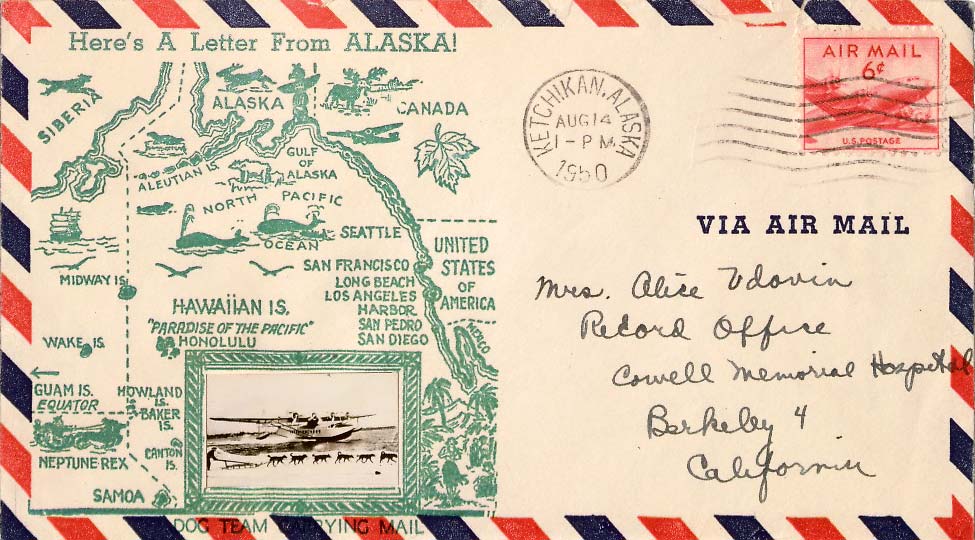 Here's A Letter From ALASKA!
SIBERIA
ALASKA
CANADA
ALEUTIAN IS.
GULF
OF
ALASKA
NORTH PACIFIC
OCEAN
SEATTLE
UNITED
STATES
OF
AMERICA
SAN FRANCISCO
LONG BEACH
LOS ANGELES
HARBOR
SAN PEDRO
SAN DIEGO
MEXICO
MIDWAY IS.
HAWAIIAN IS.
"PARADISE OF THE PACIFIC"
HONOLULU
WAKE IS.
GUAM IS.
EQUATOR
HOWLAND
IS.
BAKER
IS.
NEPTUNE REX
CANTON
IS.
SAMOA
DOG TEAM CARRYING MAIL
KETCHIKAN, ALASKA
AUG 14
1 - P M
1950
AIR MAIL
6¢
U.S. POSTAGE
VIA AIR MAIL
Mrs. Alice Udovin
Record Office
Cowell Memorial Hospital
Berkeley 4
California